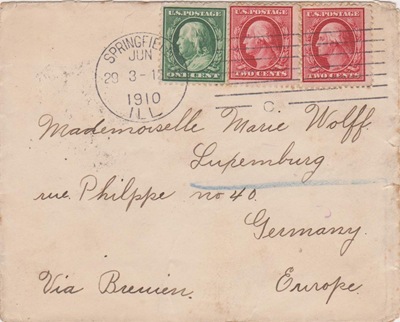 U.S.POSTAGE U.S.POSTAGE U.S.POSTAGE
ONE CENT TWO CENTS TWO CENTS
SPRINGFIE
JUN
29 3-1
1910
ILL
C.
Mademoiselle Marie Wolff.
Luxemburg
rue Philppe no 40.
Germany.
Via Bremen. Europe.